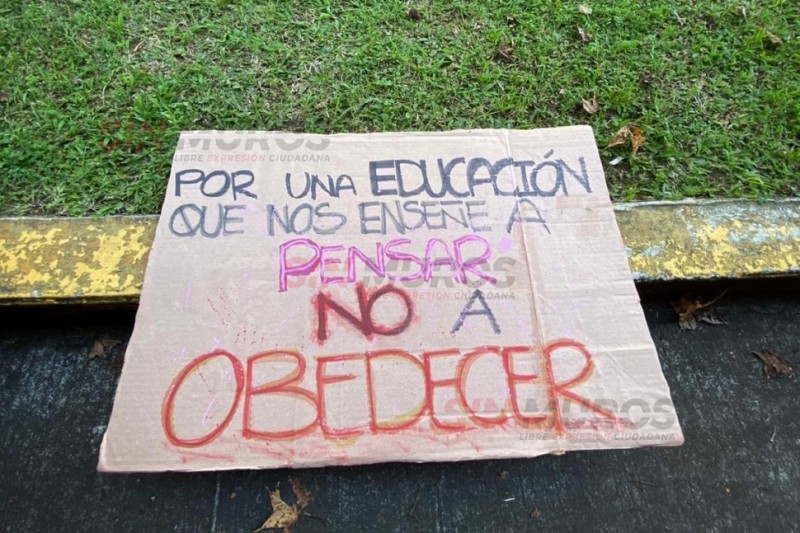 SIN MUROS
LIBRE EXPRESIÓN CIUDADANA
POR UNA EDUCACIÓN
QUE NOS ENSEÑE A
PENSAR
SIN MUROS
LIBRE EXPRESIÓN CIUDADANA
NO A
OBEDECER
SIN MUROS
LIBRE EXPRESIÓN CIUDADANA